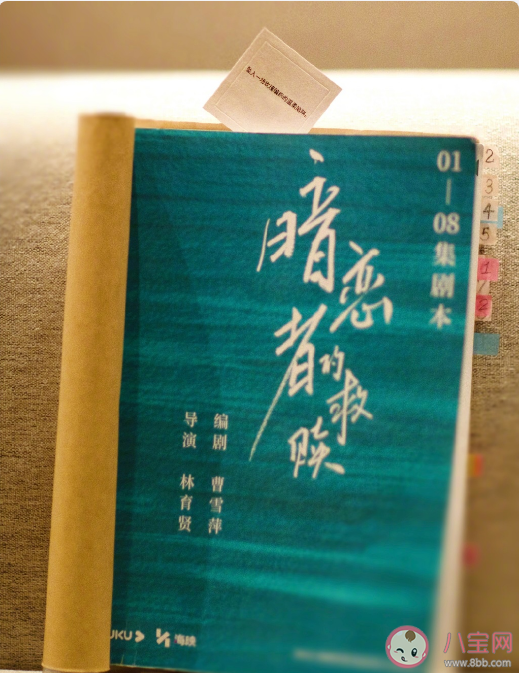 01—08集剧本
暗恋者的救赎
编剧 曹雪萍
导演 林育贤
UKU
海映
2
3
4
5
1
2
八宝网
www.8bb.com